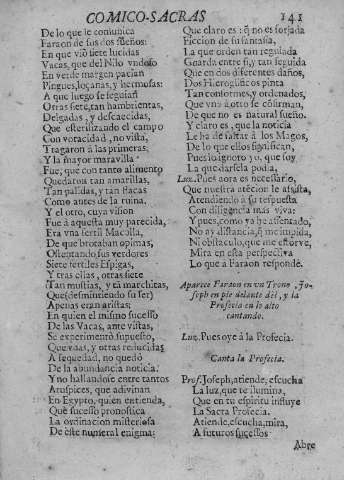 COMICO-SACRAS 141
De lo que le comunica
Faraon de sus dos sueños:
En que vió siete lucidas
Vacas, que del Nilo vndoso
En verde margen pacian
Pingues, loçanas, y hermosas:
A que luego se seguian
Otras siete, tan hambrientas,
Delgadas, y descaecidas,
Que esterilizando el campo
Con voracidad, no vista,
Tragaron à las primeras;
Y la mayor maravilla
Fue, que con tanto alimento
Quedaron tan amarillas,
Tan palidas, y tan flacas
Como antes de la ruina.
Y el otro, cuya vision
Fue à aquesta muy parecida,
Era vna fertil Macolla,
De que brotaban opimas,
Ostentando sus verdores
Siete fertiles Espigas,
Y tras ellas, otras siete
Tan mustias, y tã marchitas,
Que (desmintiendo su ser)
Apenas eran aristas;
En quien el mismo sucesso
De las Vacas, ante vistas,
Se experimentò supuesto,
Que vnas, y otras reducidas
A sequedad, no quedò
De la abundancia noticia.
Y no hallandose entre tantos
Aruspices, que adivinan
En Egypto, quien entienda,
Què sucesso pronostica
La ordinacion misteriosa
De este numeral enigma:
Que claro es: q̃ no es forjada
Ficcion de su fantasia,
La que orden tan regulada
Guarda entre sì, y tan seguida
Que en dos diferentes daños,
Dos Hieroglificos pinta
Tan conformes, y ordenados,
Que vna à otro se confirman,
De que no es natural sueño.
Y claro es, que la noticia
Le ha de faltar à los Magos,
De lo que ellos significan,
Pues lo ignoro yo, que soy
La que darsela podia,
Luz. Pues aora es necessario,
Que nuestra atẽcion le assista,
Atendiendo à su respuesta
Con diligencia mas viva;
Y pues, como ya he assentado,
No ay distancia, q̃ me impida,
Ni obstaculo, que me estorve,
Mira en esta perspectiva
Lo que à Faraon responde.
Aparece Faraon en vn Trono, Jo-
seph en pie delante dèl, y la
Profecia en lo alto
cantando.
Luz. Pues oye à la Profecia.
Canta la Profecia.
Prof. Joseph, atiende, escucha
La luz, que te ilumina,
Que en tu espiritu influye
La Sacra Profecia.
Atiende, escucha, mira,
A futuros sucessos
Abre